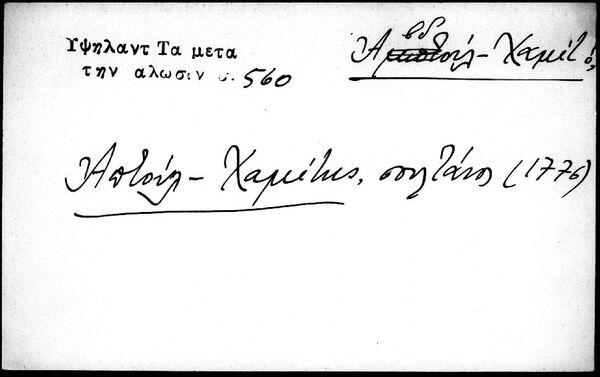 Υψηλαντ Τα μετα
την αλωσιν σ. 560
Αβδούλ-Χαμίτ ὁ,
Ἀπτούλ-Χαμίτης, σουλτάνος (1776)